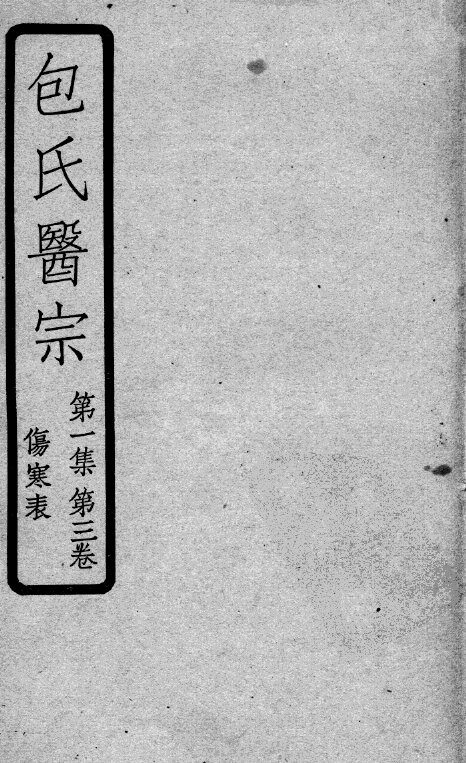 包氏醫宗
第一集 第三卷
傷寒表